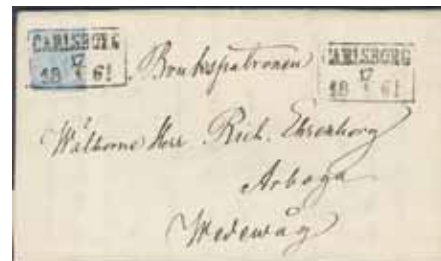 CARLSBORG
17
18 61
Brukspatronen
CARLSBORG
17
18 61
Wälborne Herr Rich. Ehrenborg
Arboga
Medewåg